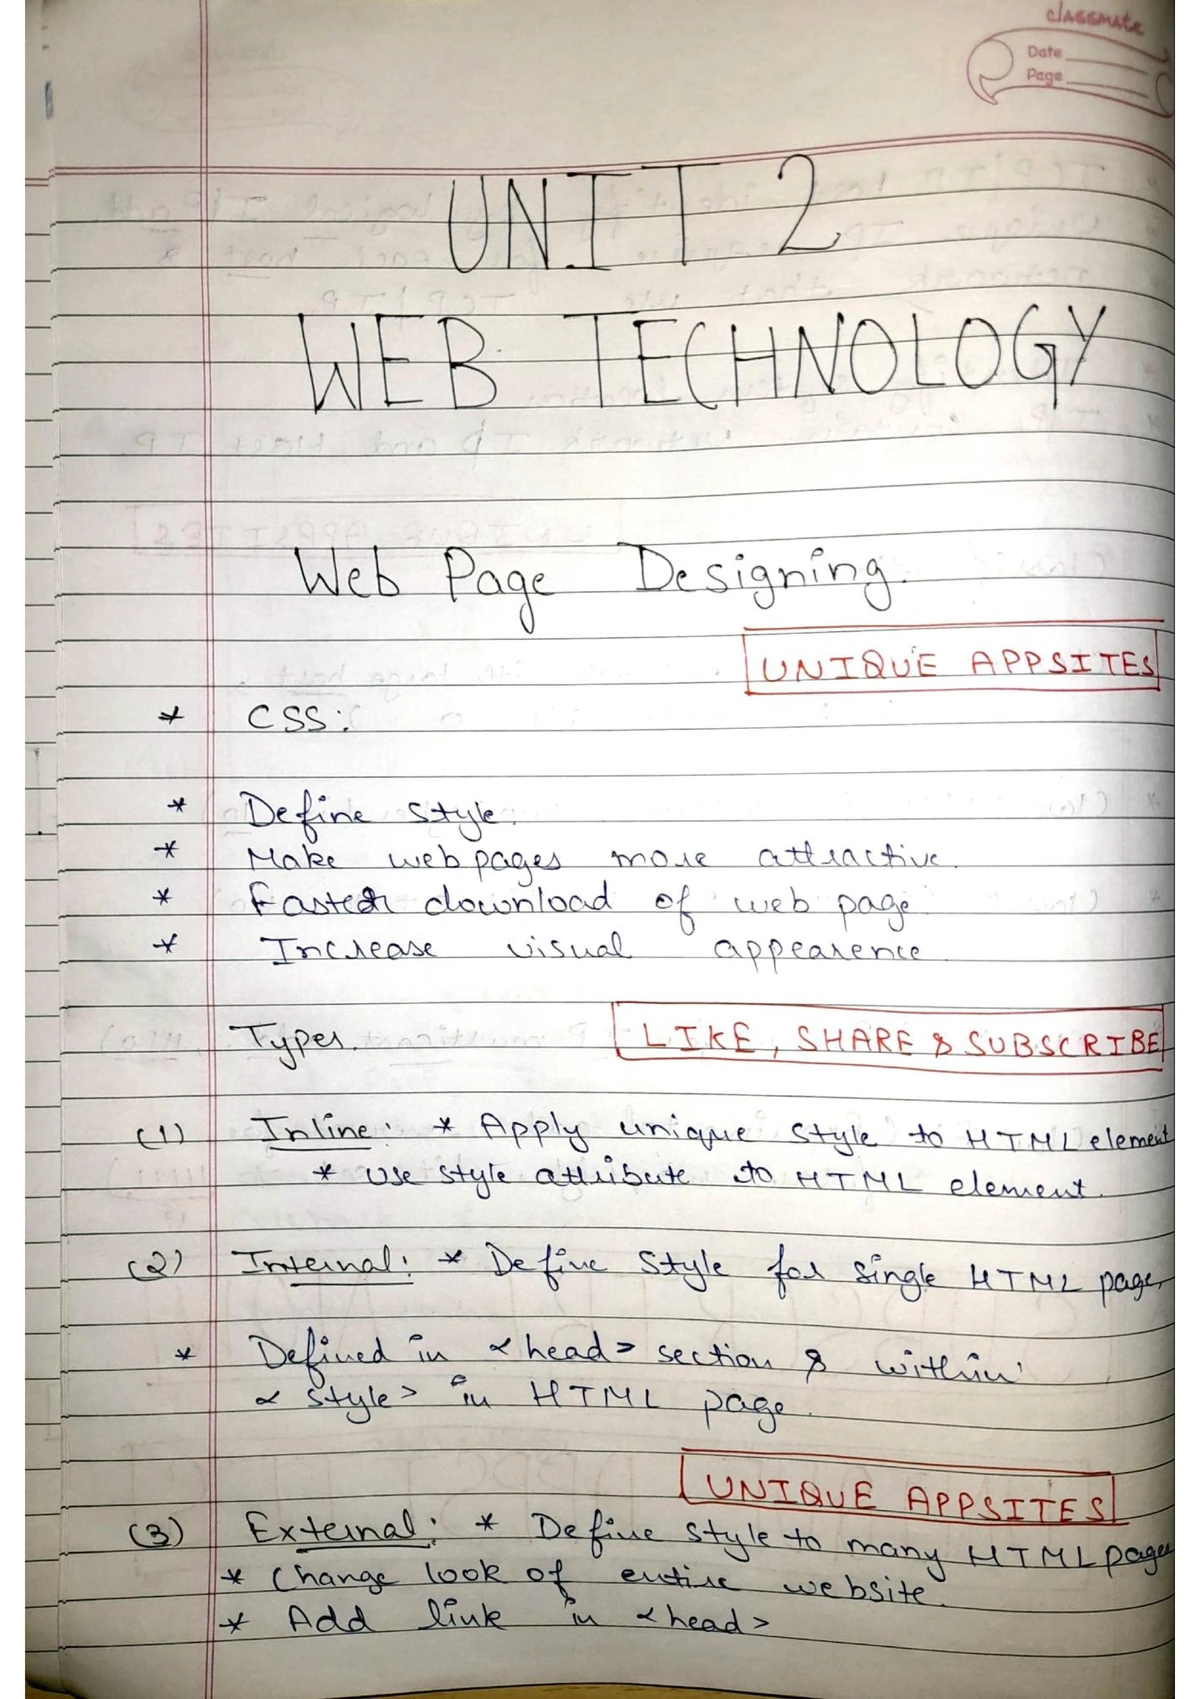 classmate
Date
Page
UNIT 2
WEB TECHNOLOGY
Web Page Designing.
UNIQUE APPSITES
* CSS:
* Define style.
* Make webpages more attractive.
* Faster download of web page
* Increase visual appearence
Types.
LIKE, SHARE & SUBSCRIBE
(1) Inline: * Apply unique style to HTML element
* Use style attribute to HTML element.
(2) Internal: * Define Style for single HTML page,
* Defined in <head> section & within
<style> in HTML page.
UNIQUE APPSITES
(3) External: * Define style to many HTML pages
* Change look of entire website.
* Add link in <head>